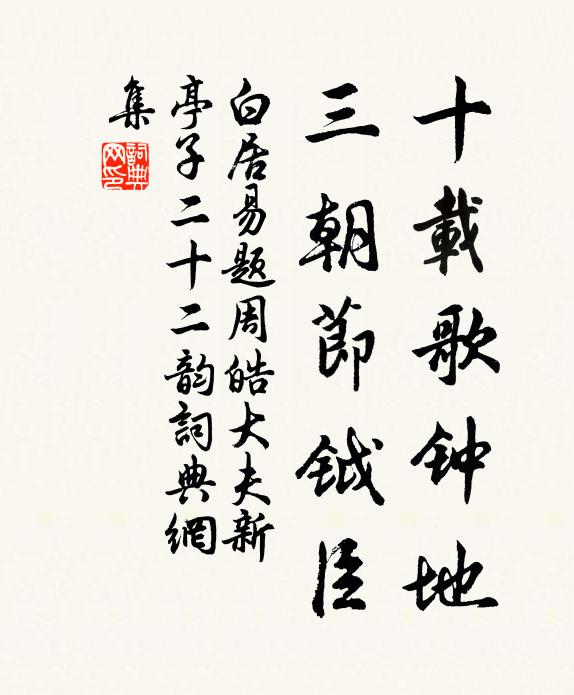 十載歌钟地
三朝節钺臣
白居易題周皓大夫新
亭子二十二韵詞典網
集
詞典网印